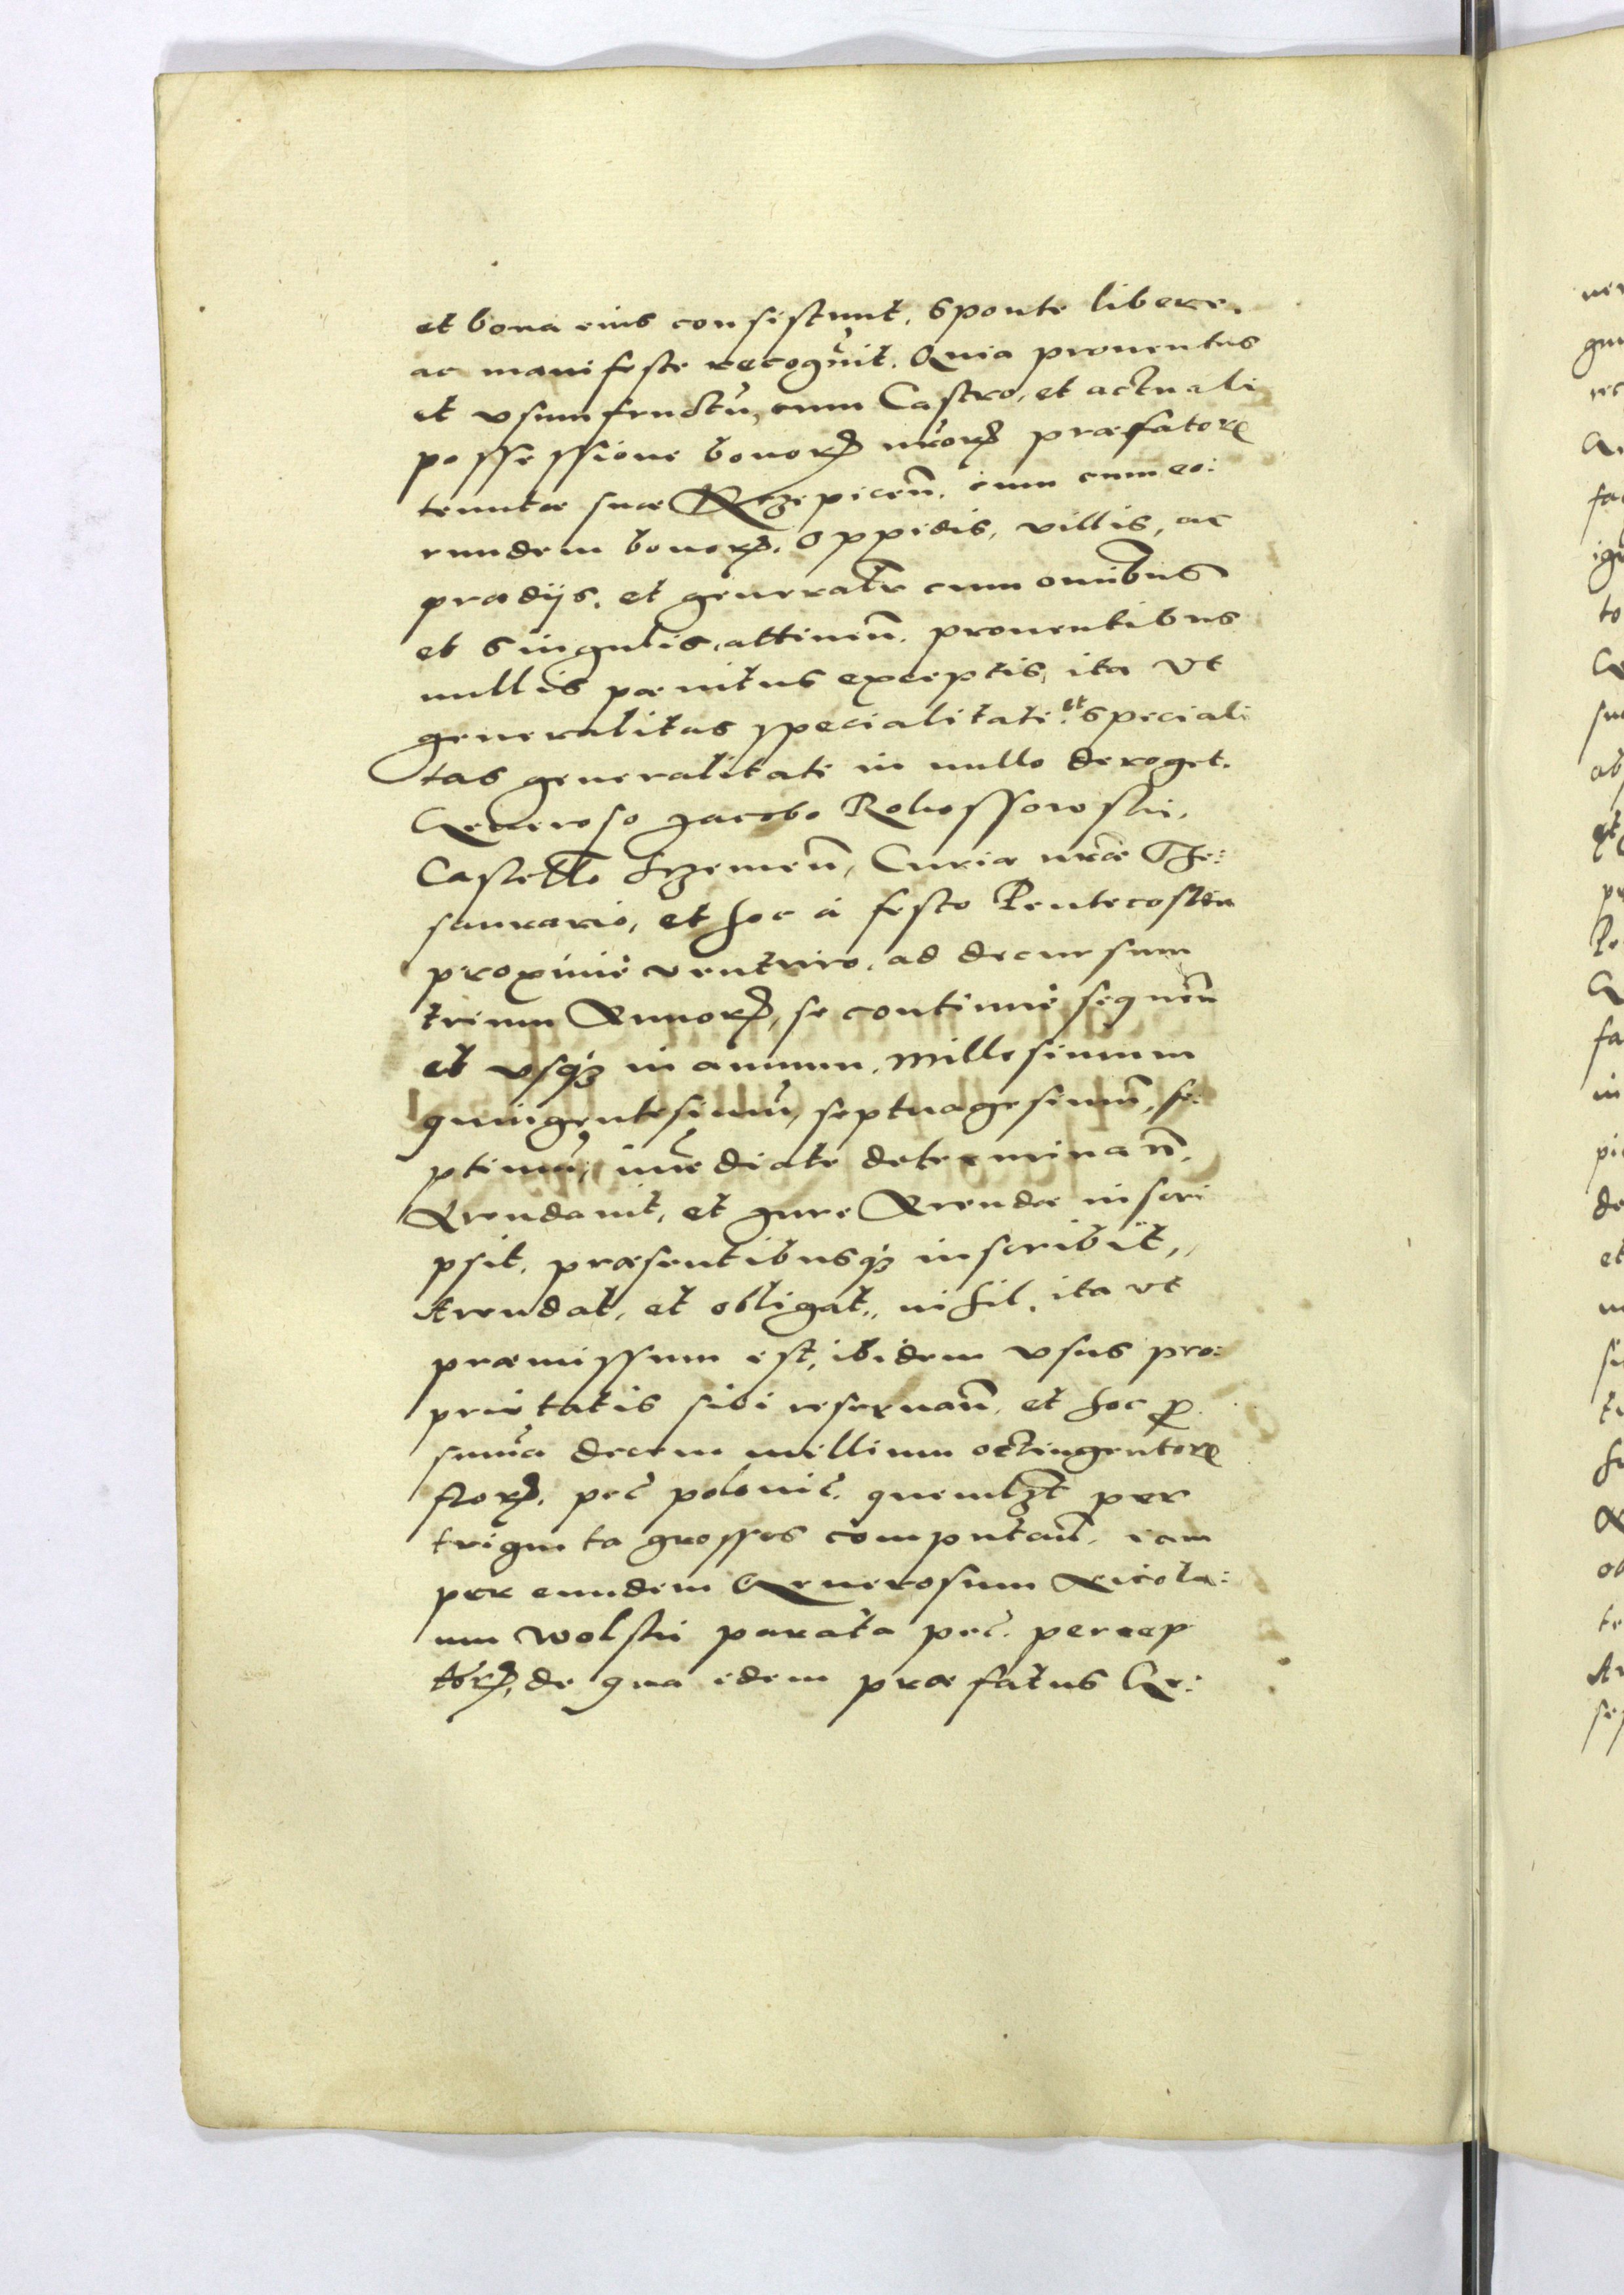 et bona eius consistunt, sponte libere,
ac manifeste recognuit. Quia prouentus
et vsumfructũ, cum Castro, et actuali
possessione bonorꝝ nr̃orꝝ præfatorꝝ
tenutæ suæ Krzepiceñ. cum cum eo:
rundem bonorꝝ. Oppidis, villis, ac
prædijs. et generalr̃ cum omĩbus
et singulis, attineñ. prouentibus
nullis pænitus exceptis, ita vt
generalitas specialitati, et speciali
tas generalitati in nullo deroget.
Generoso Jacobo Rokossowski,
Castell̃o Srzemeñ, Curiæ nr̃æ The:
saurario, et hoc á festo Pentecosten
proximè venturo, ad decursum
trium Annorꝝ, se continuè sequeñ
et vsqꝫ in annum, millesimum
quingentesimũ, septuagesimũ, se:
ptimũ, im̃ediate determinañ.
Arendauit, et Jure Arendæ inscri
psit, præsentibusqꝫ inscribit,
Arendat, et obligat, nihil, ita vt
præmissum est, ibidem vsus pro:
prietatis sibi reseruañ, et hoc ꝓ
sum̃a decem millium octingentorꝝ
florꝝ. pec̃ polonic̃. quemlꝫt per
triginta grossos computañ, iam
per eundem Generosum Nicola:
um Wolski parata pec̃. percep
torꝝ, de qua idem præfatus Ge: